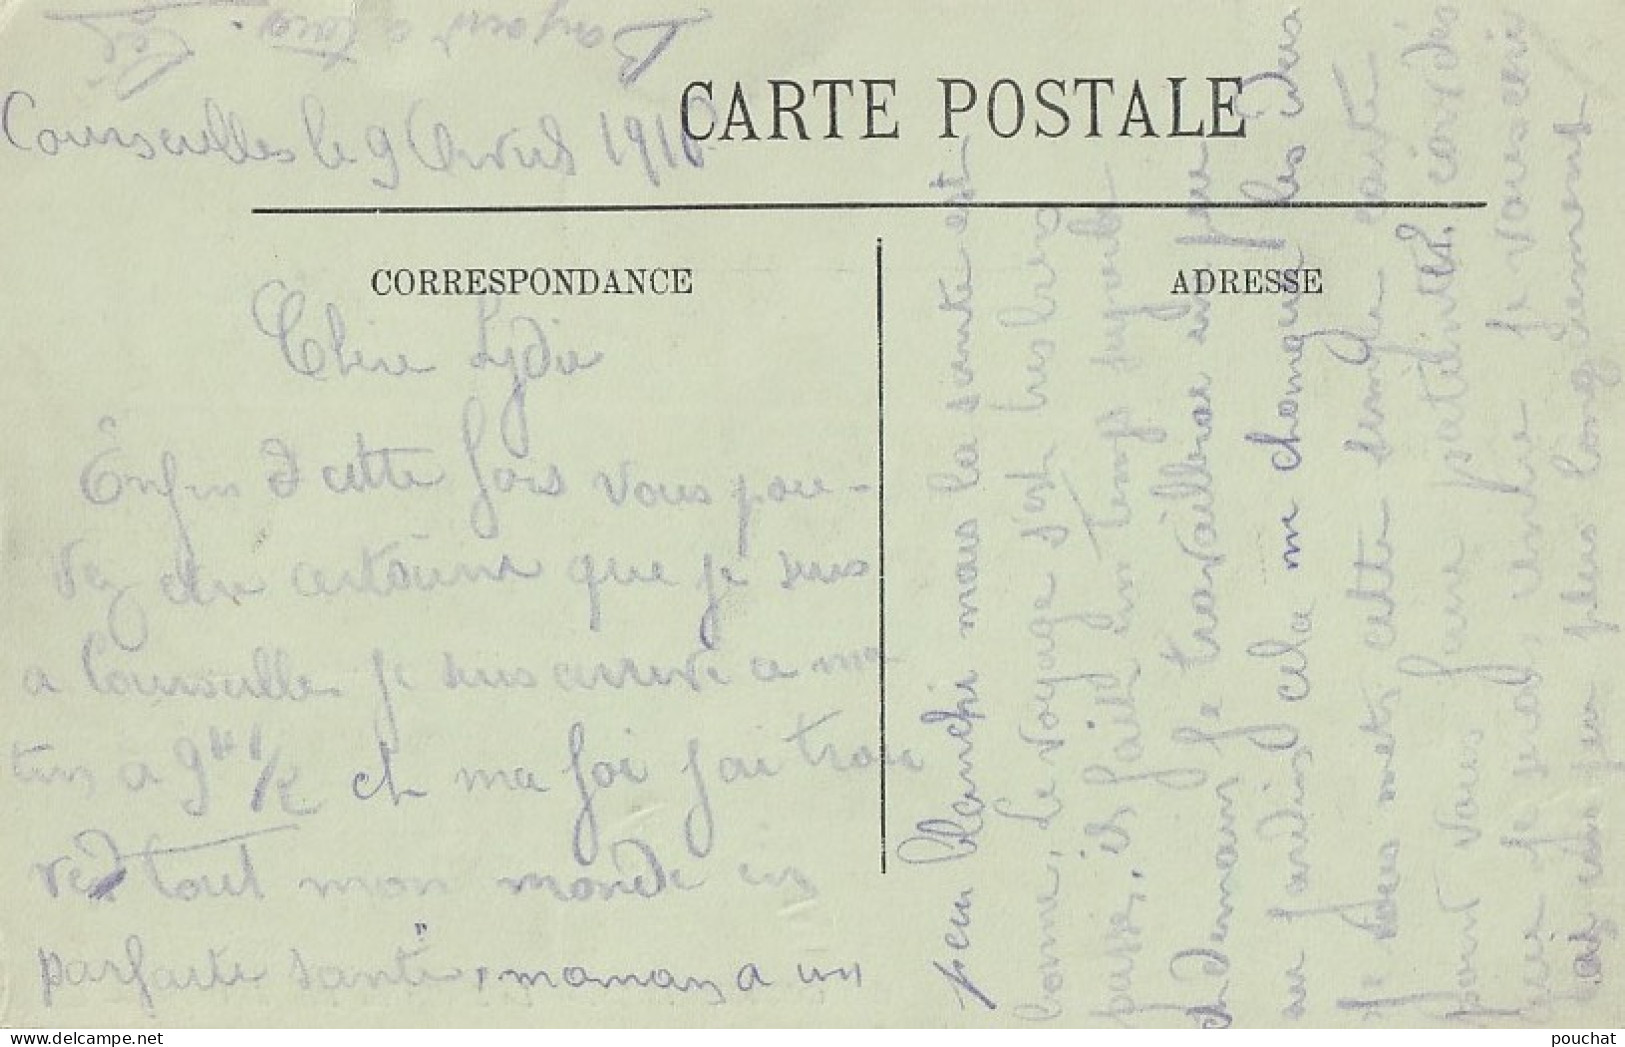 Bonjour a tous.
Courseulles le 9 Avril 191
CARTE POSTALE
CORRESPONDANCE
ADRESSE
Chere Lydie
Enfin cette fois vous pou-
vez etre certaine que je suis
a Courseulles je suis arrivé ce ma-
tin a 9h 1/2 et ma foi j'ai trou
vé tout mon monde en
parfaite santé, maman a un
peu blanchi mais la santé est
bonne, Le voyage s'est tres bien
passé, il fait un temps superbe
et demain je travaillerai un peu
au jardin cela me changera les idees
Je vous mets cette simple carte
pour vous faire patienter.
que je sois rentré je vous ecri
rai un peu plus longuement
pouchat